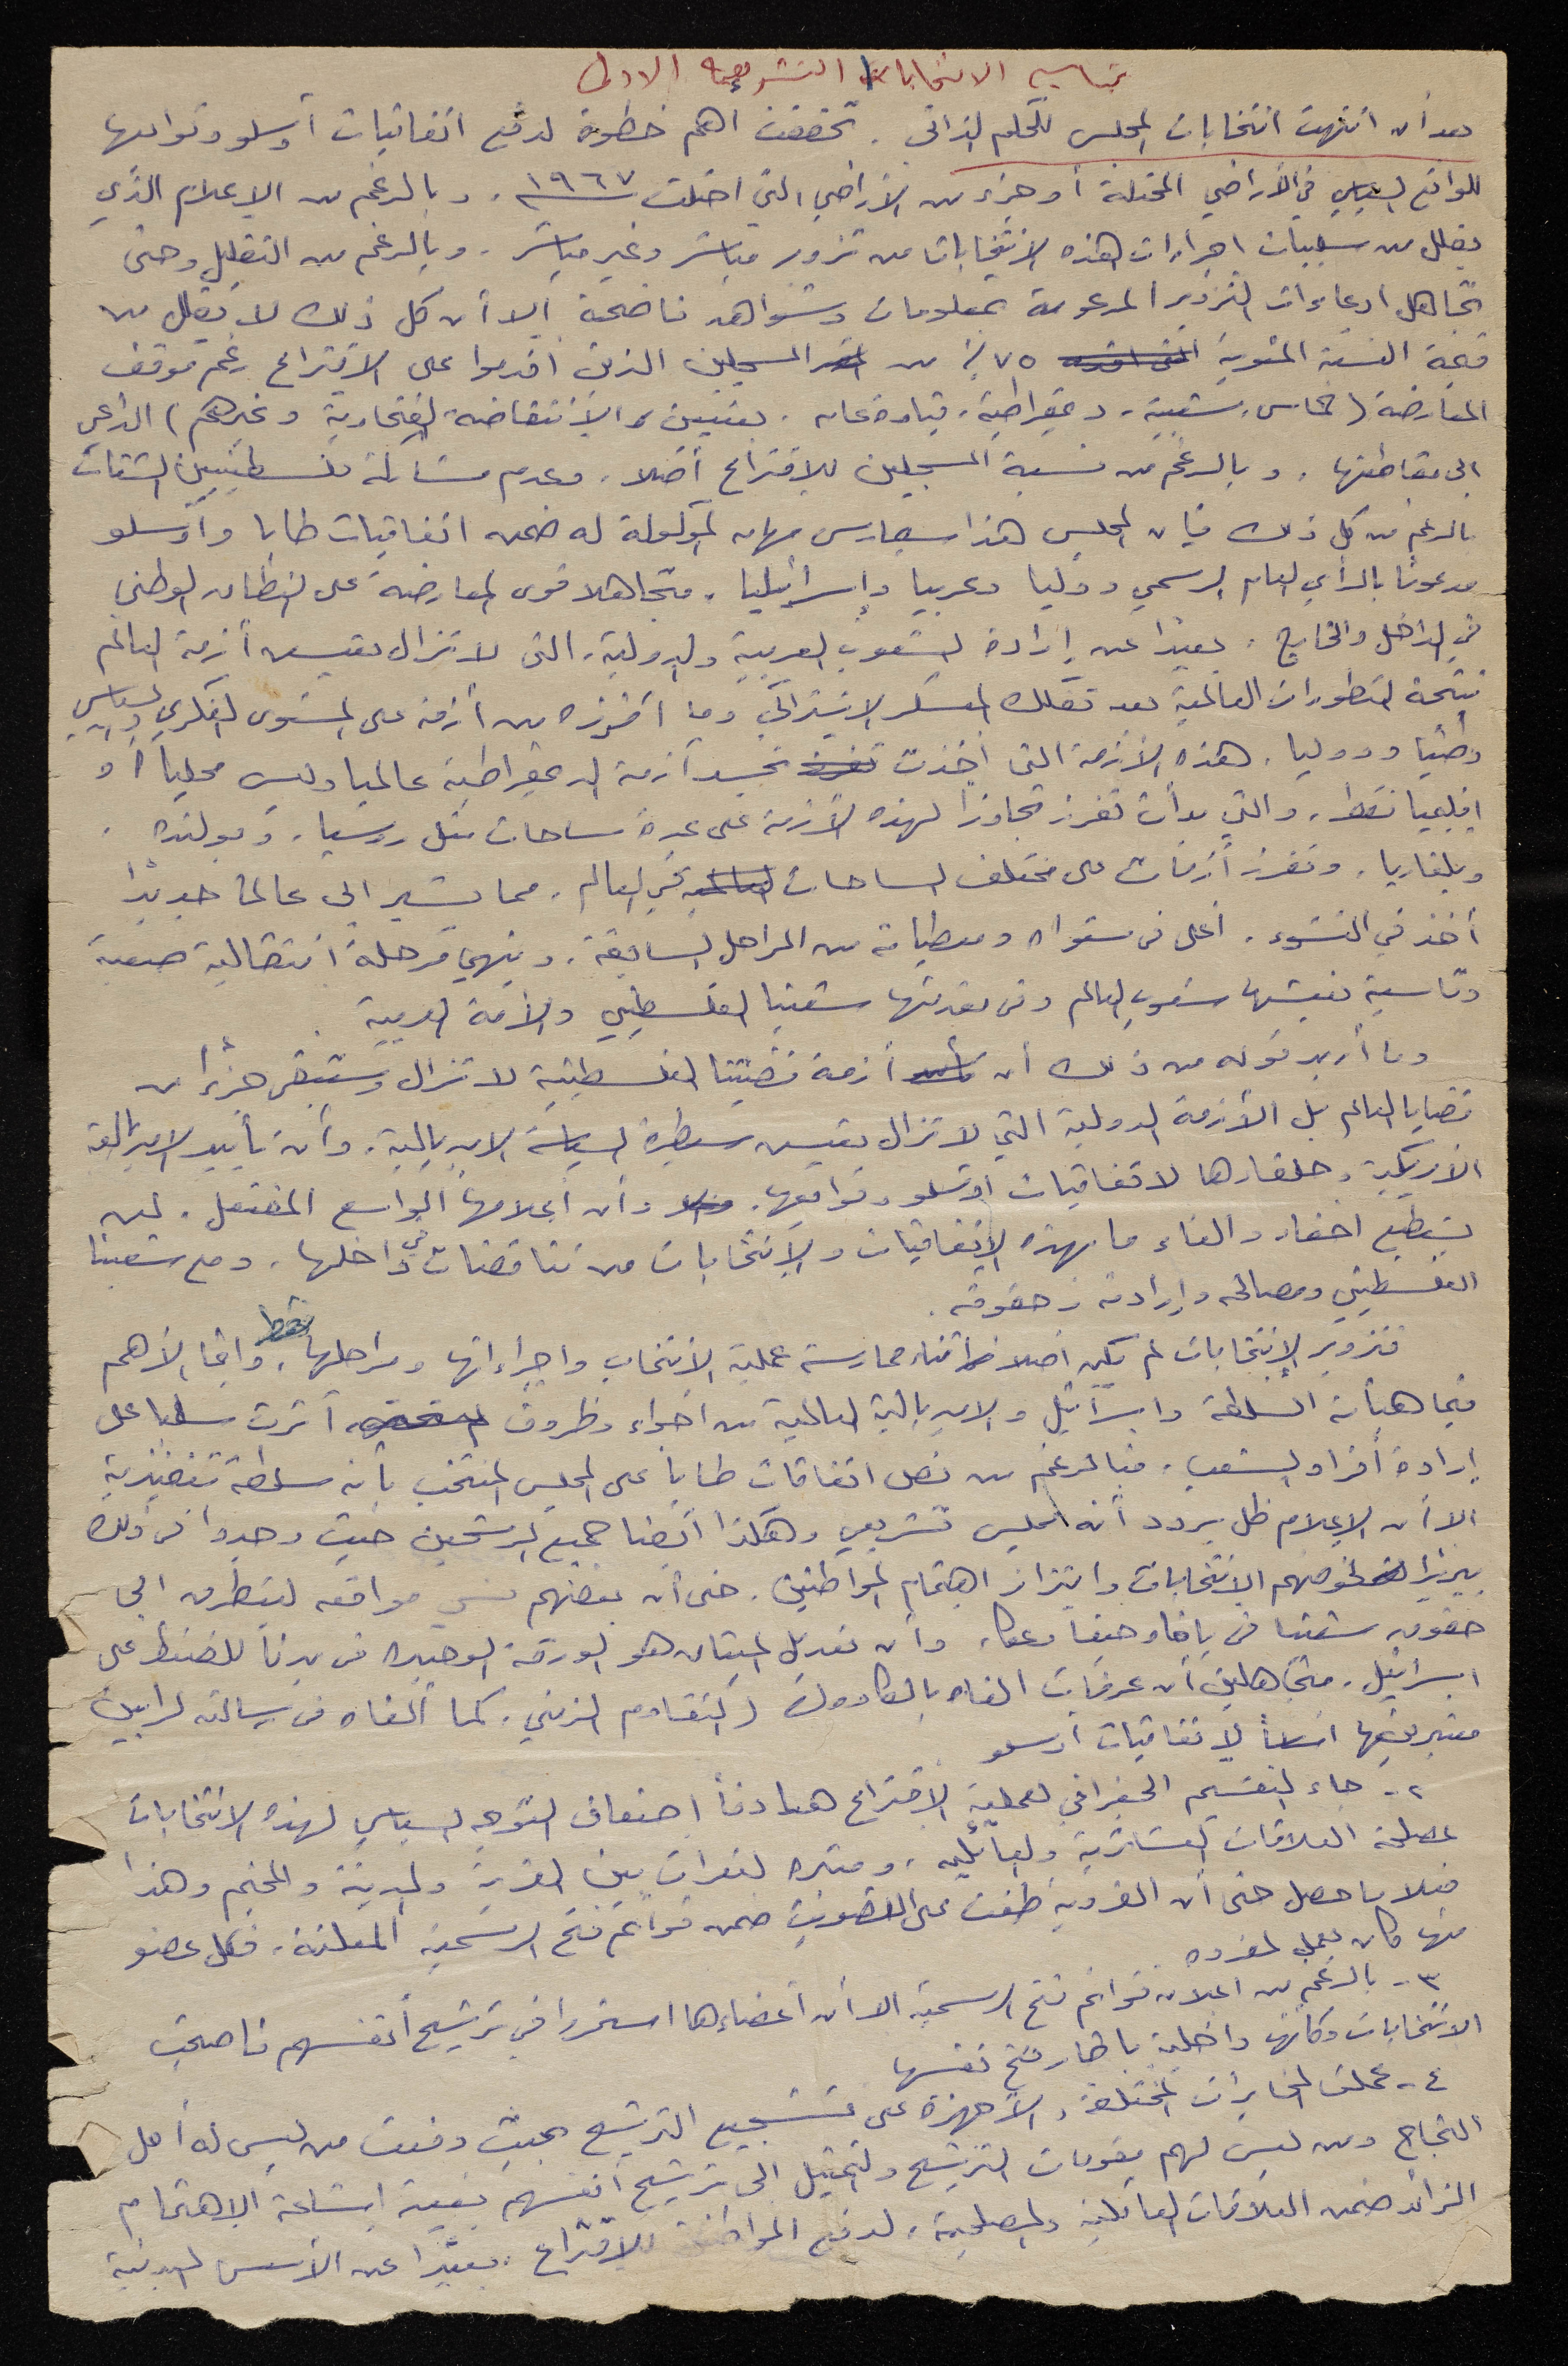 بمناسبة الانتخابات التشريعية الاولى
بعد أن انتهت انتخابات المجلس للحكم الذاتي. تحققت اهم خطوة لدفع اتفاقيات أوسلو وتوابعها
للواقع السياسي في الأراضي المحتلة أو جزء من الأراضي التي احتلت سنة ١٩٦٧. وبالرغم من الإعلام الذي
يقلل من سلبيات اجراءات هذه الانتخابات من تزوير مباشر وغير مباشر. وبالرغم من التقليل وحتى
تجاهل ادعاءات التزوير المدعومة بمعلومات وشواهد فاضحة ألا أن كل ذلك لا يقلل من
قيمة النسبة المئوية ٧٥٪ من المسجلين الذين اقدموا على الاقتراع رغم موقف
المعارضة (حماس، شعبية، ديمقراطية، قيادة عامه، بعثيين والانتفاضة الفتحاوية وغيرهم) الداعي
الى مقاطعتها. وبالرغم من نسبة المسجلين للاقتراع أصلا، وعدم مشاركة فلسطينيين الشتات
بالرغم من كل ذلك فإن المجلس هذا سيمارس مهامه الموكولة له ضمن اتفاقيات طابا وأوسلو
مدعوما بالرأي العام الرسمي دوليا وعربيا وإسرائيليا، متجاهلا قوى المعارضة على النطاق الوطني
في الداخل والخارج، بعيدا عن إرادة الشعوب العربية والدولية، التي لا تزال تعيس أزمة العالم
نتيجة التطورات العالمية بعد تفكك المعسكر الاشتراكي وما أفرزه من أزمة على المستوى الفكري والسياسي
وطنيا ودوليا. هذه الأزمة التي أخذت تجسد أزمة الديمقراطية عالميا وليس محليا أو
اقليميا فقط، والتي بدأت تفرز تجاوزا لهذه الأزمة على عدة ساحات مثل روسيا، وبولنده،
وبلغاريا، وتفرز أزمات على مختلف الساحات في العالم، مما يشير الى عالما جديدا
أخذ في النشوء. أعلى في مستواه ومعطياته من المراحل السابقة، وينهي مرحلة انتقالية صعبة
وقاسية تعيشها شعوب العالم وفي مقدمتها شعبنا الفلسطيني والأمة العربية.
وما أريد قوله من ذلك أن أزمة قضيتنا الفلسطينية لا تزال وستبقى جزءا من
قضايا العالم بل الأزمة الدولية التي لا تزال تعيس سيطرة السياسة الامبريالية، وأن تأييد الامبريالية
الأمريكية وحلفاءها لاتفاقيات اوسلو وتوابعها، وأن اعلامها الواسع المفتعل، لن
يستطيع اخفاء والغاء ما بهذه الاتفاقيات والانتخابات من تناقضات في داخلها، ومع شعبنا
الفلسطيني ومصالحه وإرادته وحقوقه.
فتزوير الانتخابات لم يكن أصلا اثناء ممارسة عملية الانتخاب واجراءاتها ومراحلها فقط، وإنما الأهم
فيما هيأته السلطة واسرائيل والامبريالية العالمية من أجواء وظروف أثرت سلبا على
إرادة أفراد الشعب. فبالرغم من نصل اتفاقات طابا على المجلس المنتخب بأنه سلطة تنفيذية
الا أن الإعلام ظل يردد أنه مجلس تشريعي وهكذا أيضا جميع المرشحين حيث وجدوا في ذلك
تبريرا لخوضهم الانتخابات وابتزاز اهتمام المواطنين. حتى أن بعضهم نسي مواقعه ليتطرق الى
حقوق شعبنا في يافا وحيفا وعكا، وأن تعديل الميثاق هو الورقة الوحيدة في يدنا للضغط على
اسرائيل. متجاهلين أن عرفات الغاه بالكادوك (التقادم الزمني، كما ألغاه في رسالته لرابين
معتبر توقيعها اساسا لاتفاقيات أوسلو
٢- جاء التقسيم الجغرافي لعملية الاقتراع هادفا اضعاف التوجه السياسي لهذه الانتخابات
لمصلحة العلاقات العشائرية والعائلية، ومثيره لنعرات بين القرية والمدينة والمخيم وهذا
فعلا ما حصل حتى أن الفردية طغت على العضوية ضمن قوائم فتح الرسمية المعلنة، فكل عضو
منها كان يعمل لمفرده
٣- بالرغم من اعلان قوائم فتح الرسمية الا أن اعضاءها استمروا في ترشيح أنفسهم فاصبحت
الانتخابات وكأنها داخلية باطار فتح نفسها
٤- عملت المخابرات المختلفة والأجهزة على تشجيع الترشيح بحيث دفعت من ليس له أمل
النجاح ومن ليس لهم مقومات الترشيح والتمثيل الى ترشيح أنفسهم بغية اشاعة الاهتمام
الزائد ضمن العلاقات العائلية والمصلحية، لدفع المواطنين للاقتراع، بعيدا عن الأسس المبدئية